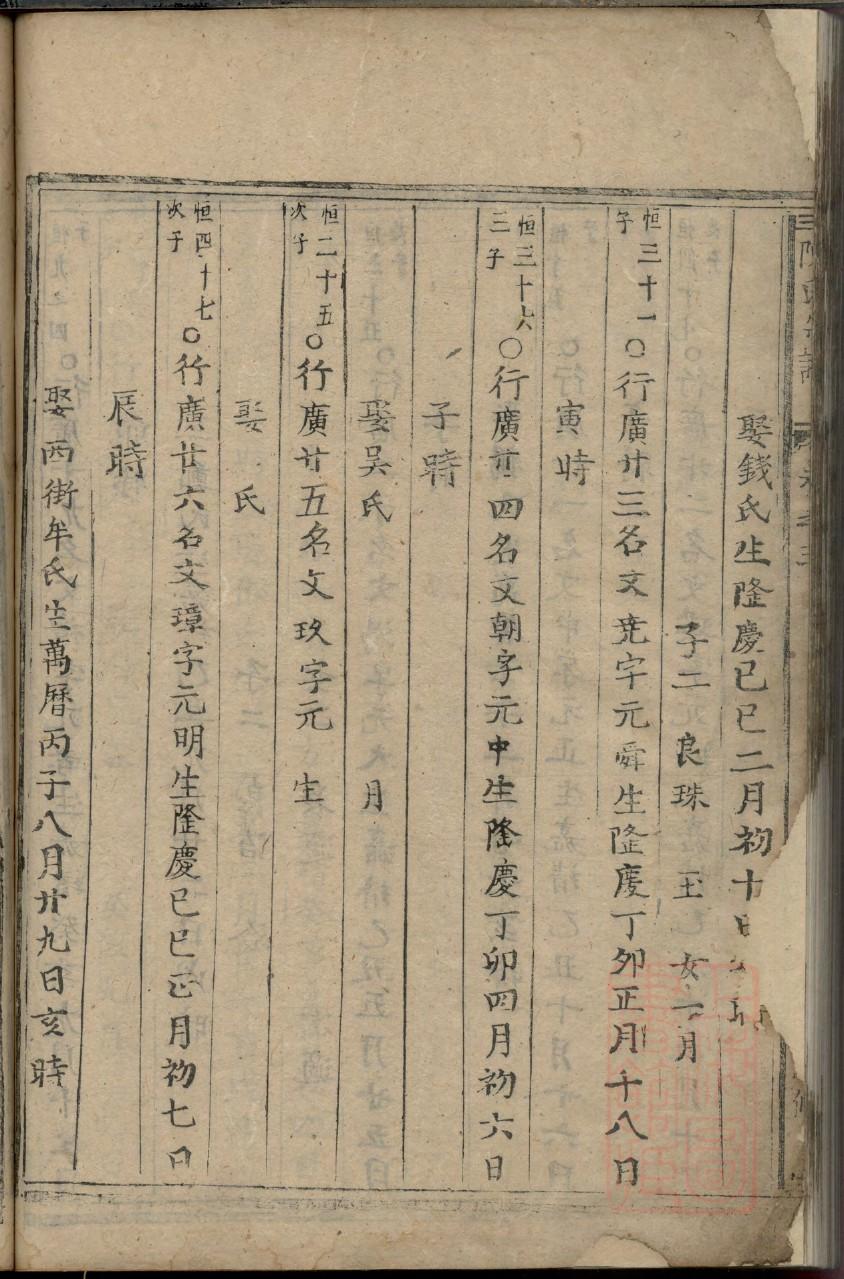 娶錢氏生隆慶己巳二月初十日
子二 良珠 玉 女一月
恒三十一子○行廣廿三名文尭字元舜生隆慶丁卯正月十八日
寅時
恒三十六三子○行廣廿四名文朝字元中生隆慶丁卯四月初六日
子時
娶吳氏 月
恒二十五次子○行廣廿五名文玖字元 生
娶 氏
恒四十七次子○行廣廿六名文璋字元明生隆慶己巳正月初七日
辰時
娶西街牟氏生萬曆丙子八月廿九日亥時